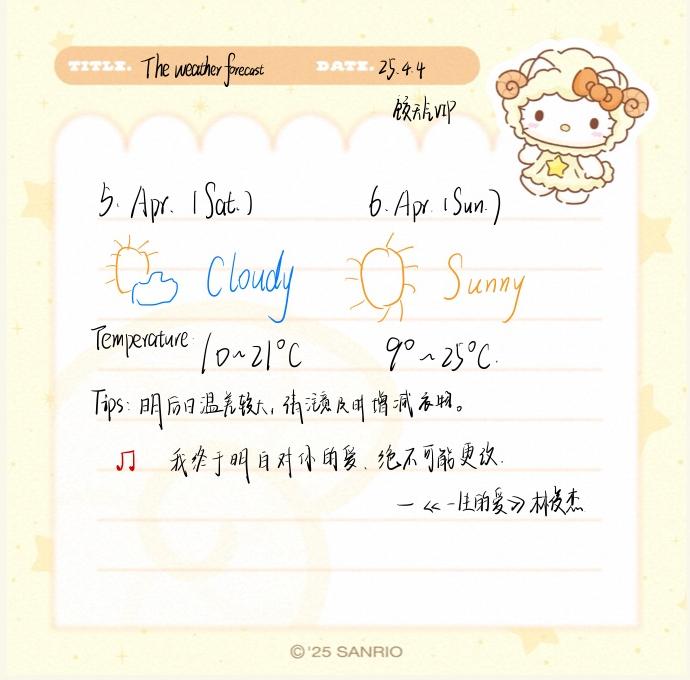 TITLE. The weather forecast DATE. 25.4.4
5. Apr. (Sat.) 6. Apr. (Sun.)
Cloudy Sunny
Temperature 10~21°C 9°~25°C.
Tips: 明后日温差较大, 请注意及时增减衣物。
♫ 我终于明白对你的爱、绝不可能更改.
—《一生的爱》林俊杰
©'25 SANRIO